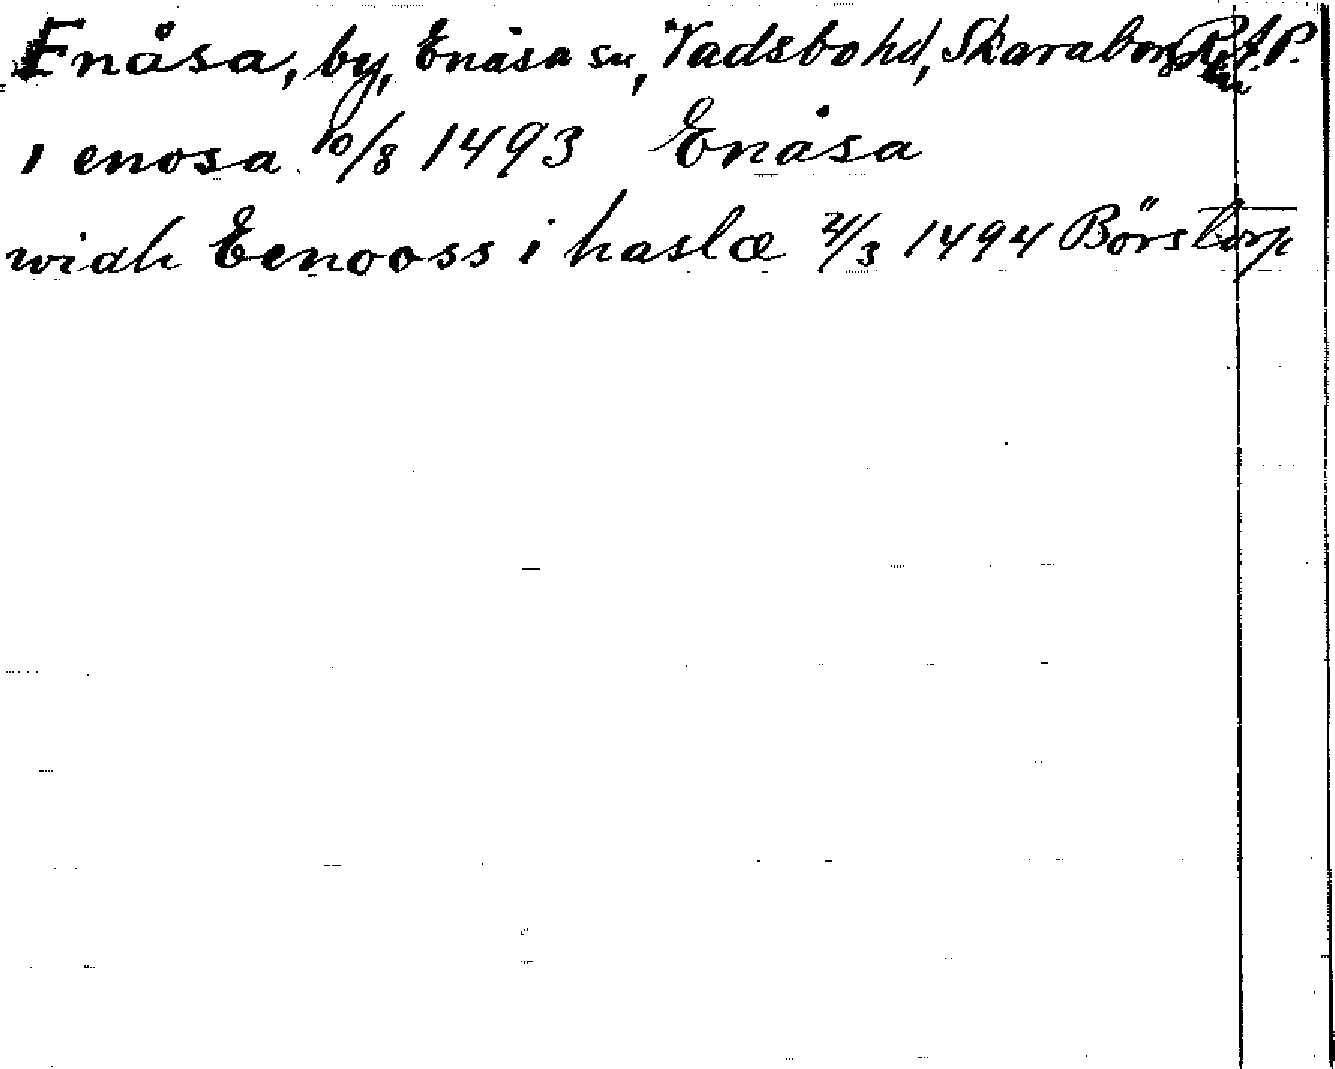 Enåsa, by, Enåsa sn, Vadsbo hd, Skaraborgs län R.A.P.
i enosa 10/8 1493 Enåsa
widh Eenooss i haslæ 2/3 1494 Börstorp